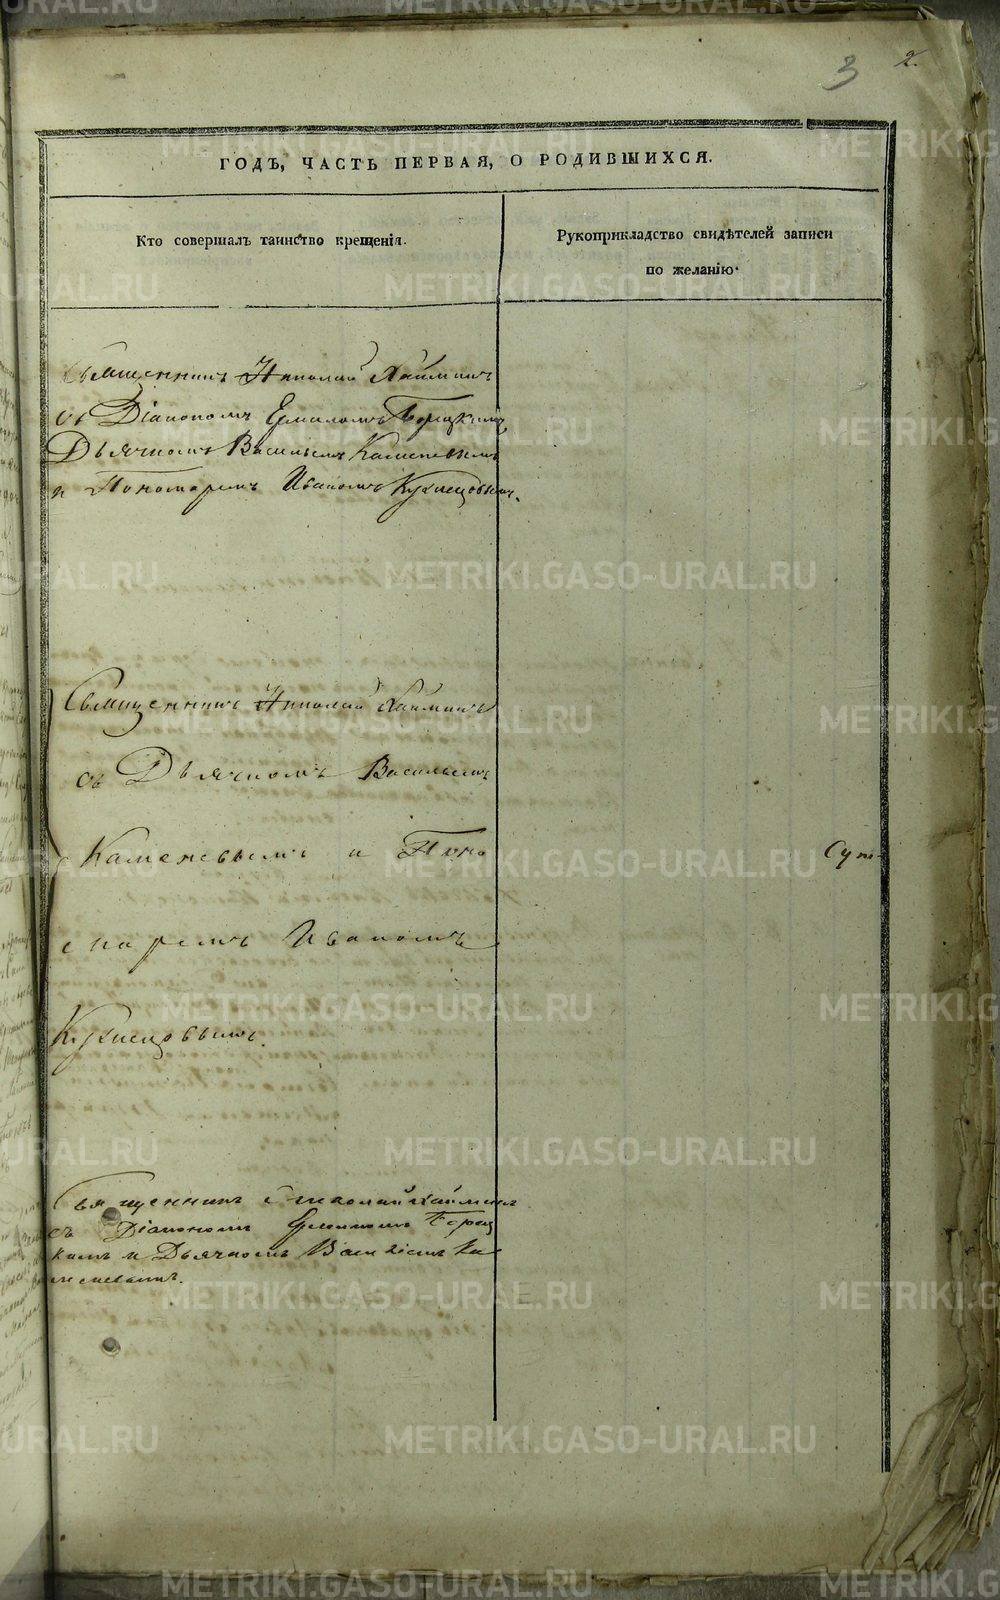 3 2.
ГОДЪ, ЧАСТЬ ПЕРВАЯ, О РОДИВШИХСЯ.
Кто совершалъ таинство крещенія.
Рукоприкладство свидѣтелей записи
по желанію.
Священникъ Николай Хайминъ
съ Діакономъ Ермиломъ
Дьячкомъ Васильемъ Каменевымъ
и Пономаремъ Иваномъ Кузнецовымъ.
Священникъ Николай Хайминъ
съ Дьячкомъ Васильемъ
Каменевымъ и Поно
маремъ Иваномъ
Кузнецовымъ.
Священникъ Николай Хайминъ
съ Діакономъ
кимъ и Дьячкомъ Васильемъ Ка
меневымъ.
METRIKI.GASO-URAL.RU